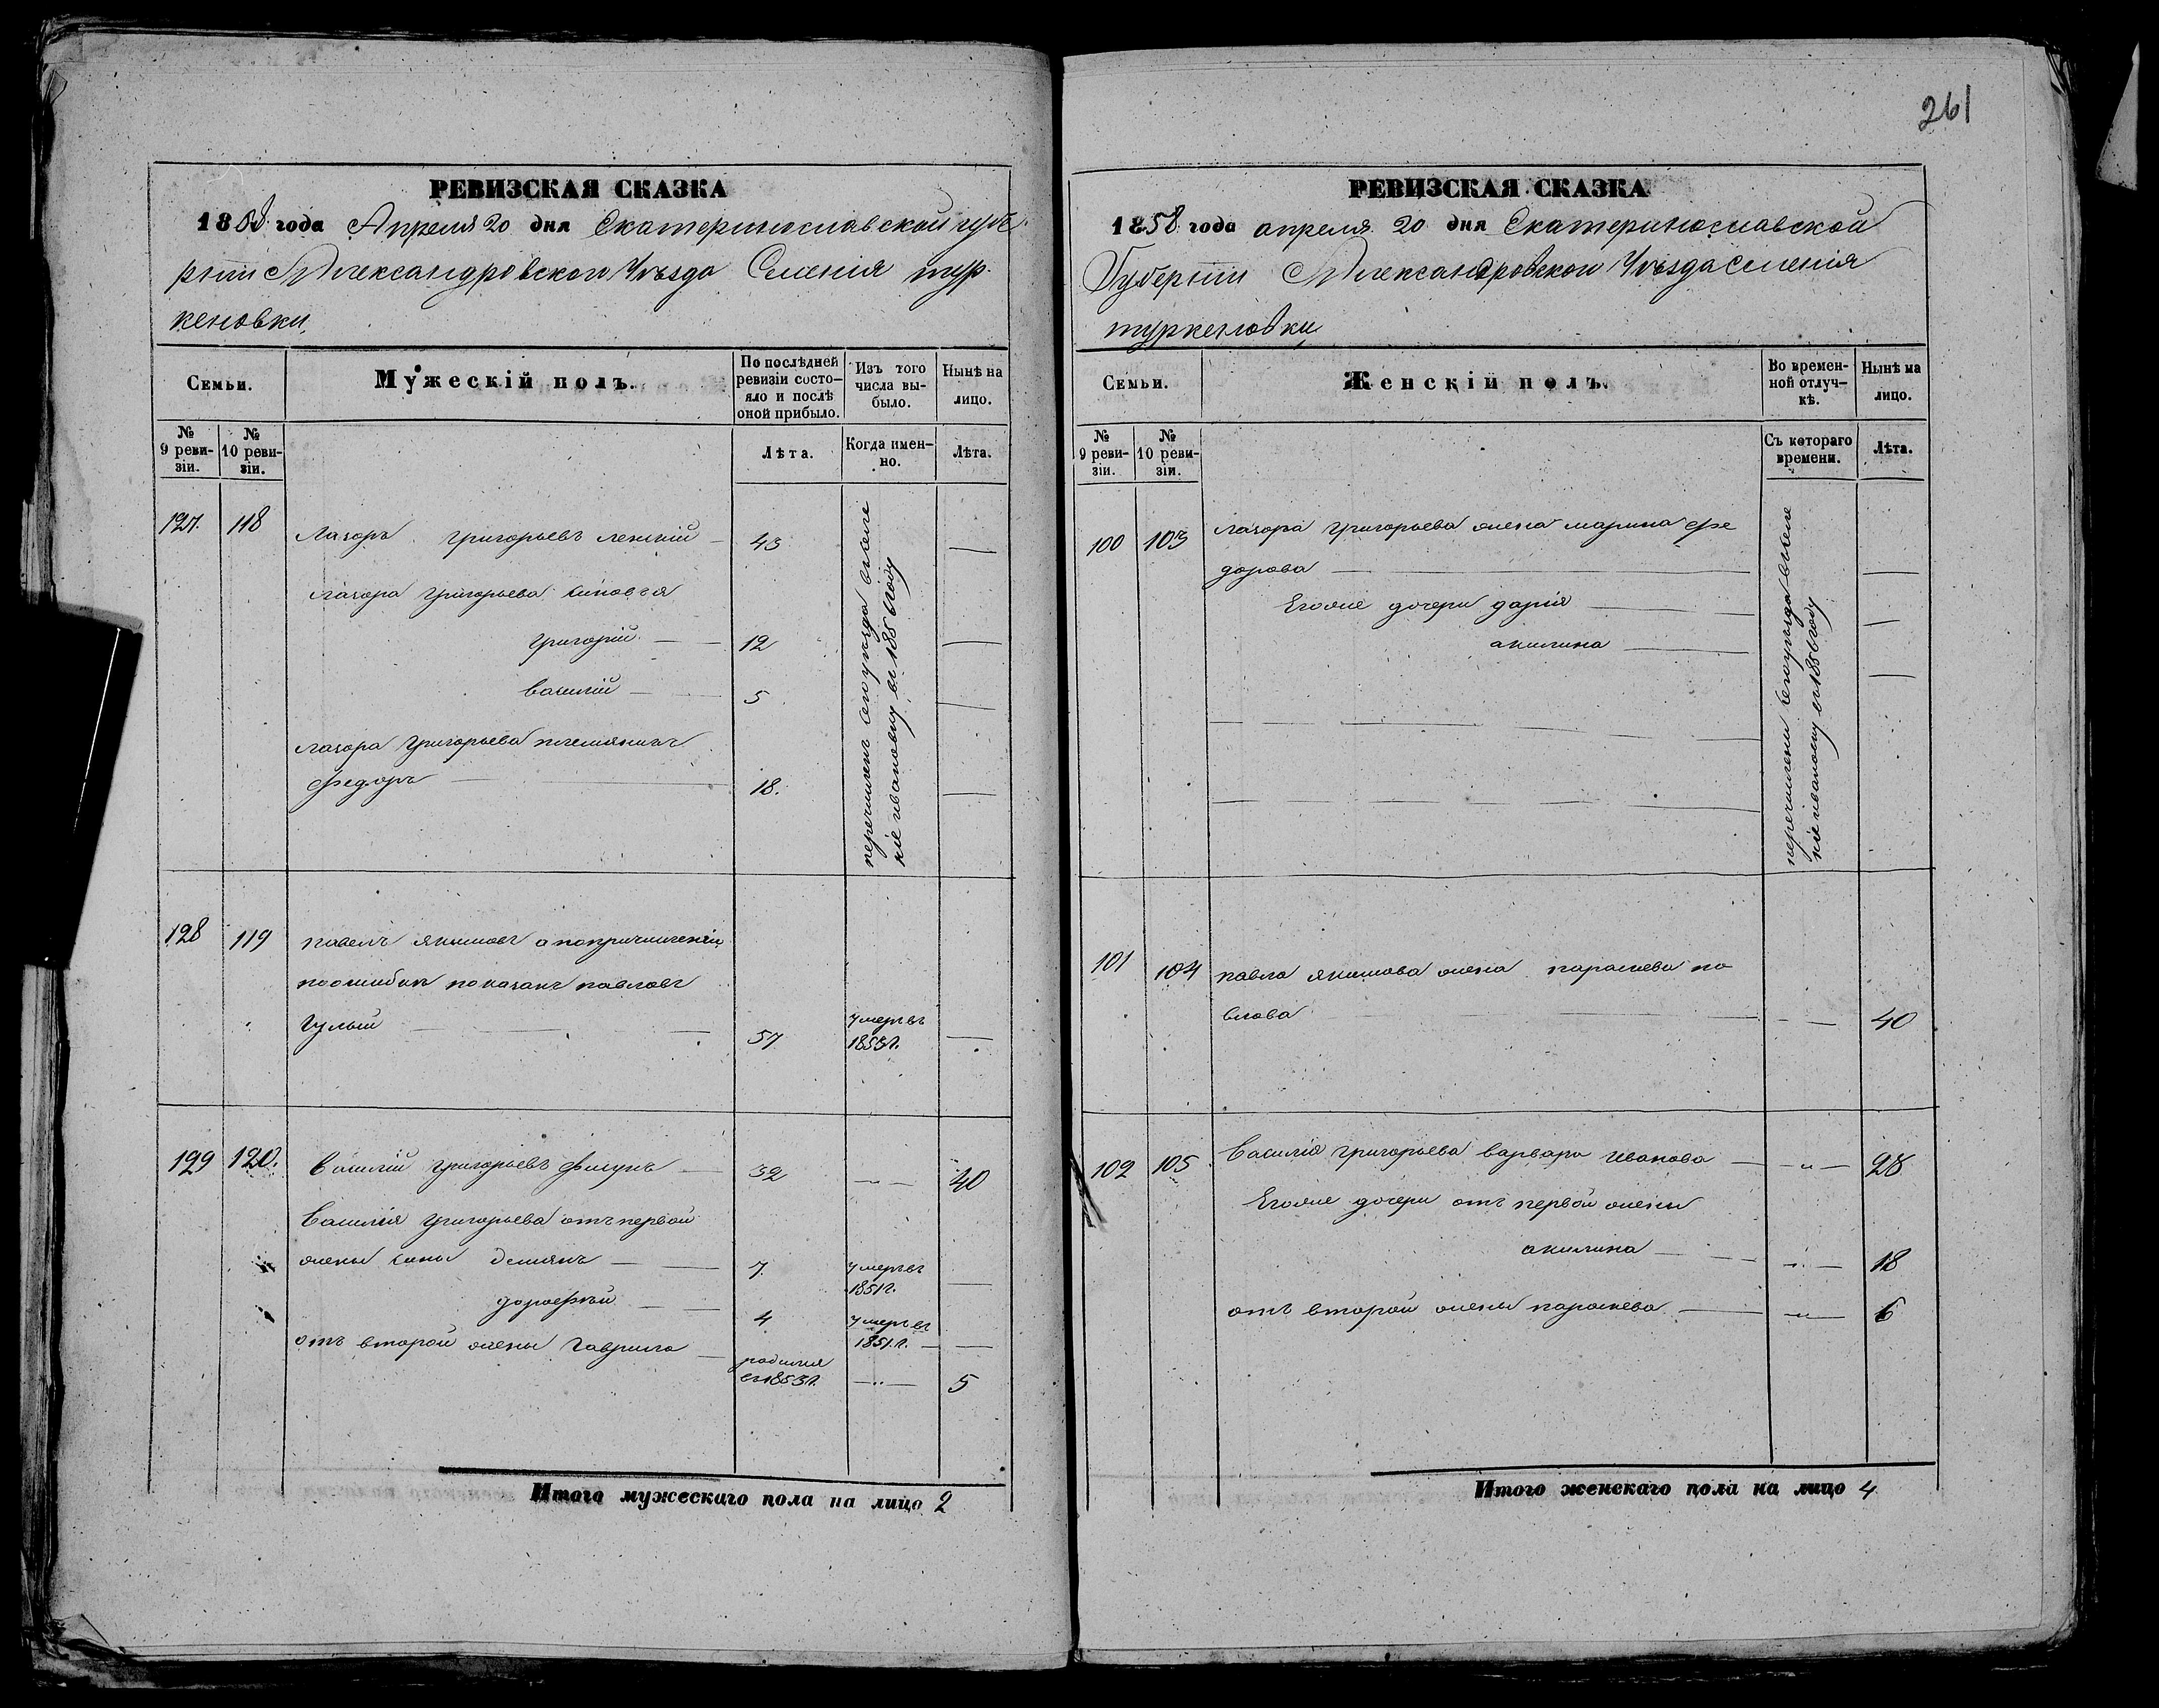 261
РЕВИЗСКАЯ СКАЗКА
1858 года Апреля 20 дня Екатеринославской губе
рніи Александровского Уѣзда Селенія тур
кеновки
Семьи.
Мужескій полъ.
По послѣдней ревизіи состо-яло и послѣ оной прибыло.
Изъ того числа вы-было.
Нынѣ на лицо.
№ 9 реви-зіи.
№ 10 реви-зіи.
Лѣта.
Когда имен-но.
Лѣта.
127. 118 Лазоръ григорьевъ 43
лазора григорьева синовья
григорій 12
василій 5
лазора григорьева племяникъ
федоръ 18.
перечисленъ въ 1856 году
128 119 павелъ якимовъ а
по ошибки показанъ павловъ
Гулый 57 умеръ въ 1853 г.
129 120. Василій григорьевъ фисунъ 32 40
Василія григорьева отъ первой
жены сины демянъ 7. умеръ въ 1851 г.
дорофѣй 4 умеръ въ 1851. г.
отъ второй жены гаврило родился въ 1853 г. 5
Итого мужескаго пола на лицо 2
РЕВИЗСКАЯ СКАЗКА
1858 года апреля 20 дня Екатеринославской
Губерніи Александровского Уѣзда селенія
туркеновки
Семьи.
Женскій полъ.
Во времен-ной отлуч-кѣ.
Нынѣ на лицо.
№ 9 реви-зіи.
№ 10 реви-зіи.
Съ котораго времени.
Лѣта.
100 103 лазора григорьева жена марина фе
дорова
Егоже дочери дарія
акилина
перечислени въ 1856 году
101 104 павла якимова жена параскева па
влова 40
102 105 Василія григорьева варвара иванова 28
Егоже дочери отъ первой жены
акилина 18
отъ второй жены параскева 6
Итого женскаго пола на лицо 4